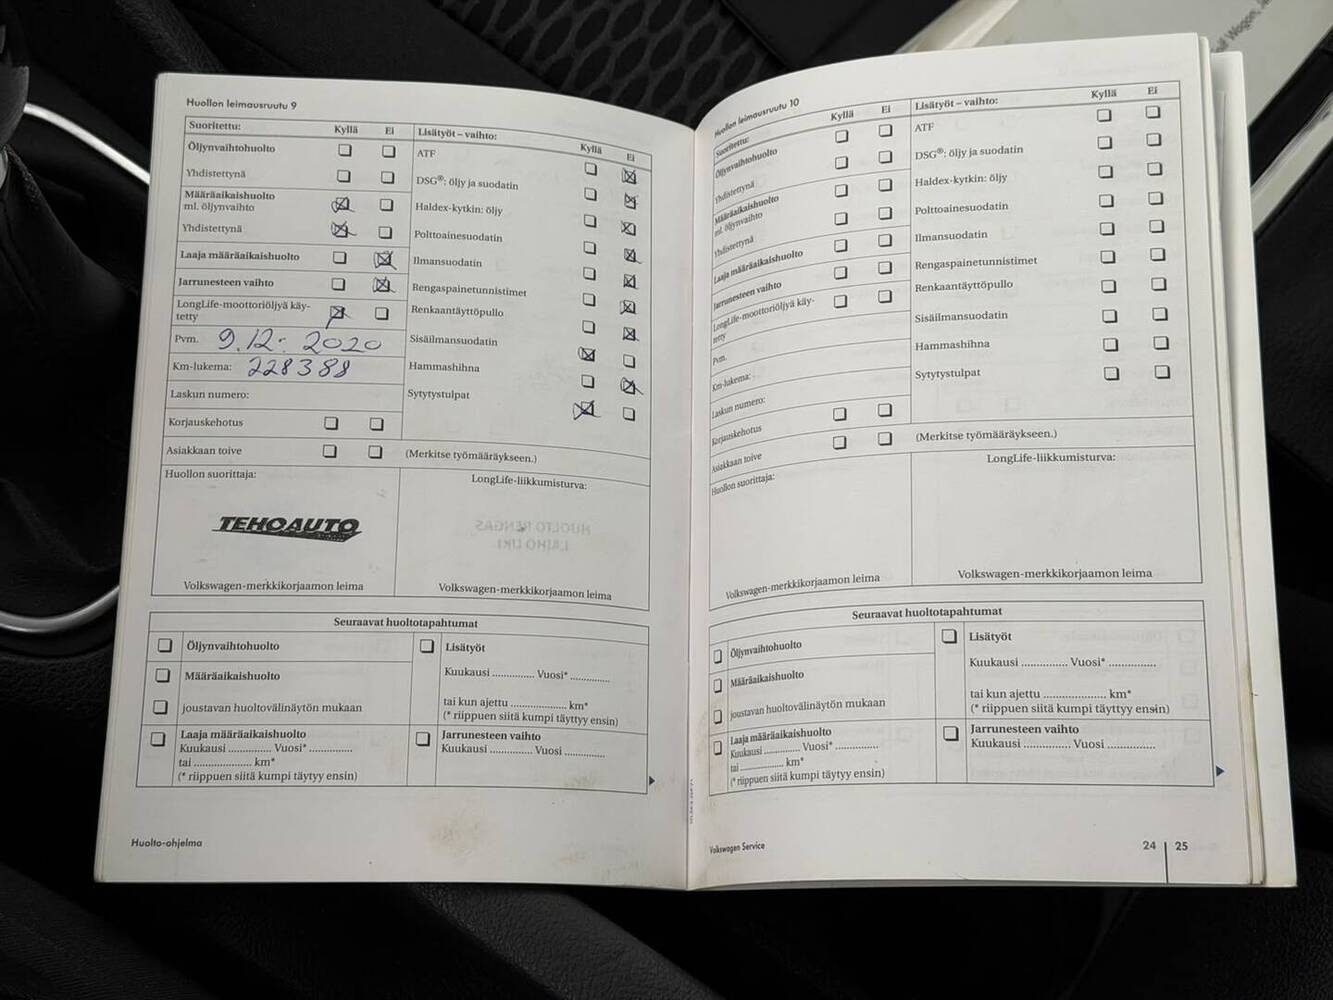 Huollon leimausruutu 9
Suoritettu: Kyllä Ei
Öljynvaihtohuolto
Yhdistettynä
Määräaikaishuolto
ml. öljynvaihto
Yhdistettynä
Laaja määräaikaishuolto
Jarrunesteen vaihto
LongLife-moottoriöljyä käy-
tetty
Pvm. 9.12. 2020
Km-lukema: 228388
Laskun numero:
Korjauskehotus
Asiakkaan toive
Lisätyöt – vaihto: Kyllä Ei
ATF
DSG®: öljy ja suodatin
Haldex-kytkin: öljy
Polttoainesuodatin
Ilmansuodatin
Rengaspainetunnistimet
Renkaantäyttöpullo
Sisäilmansuodatin
Hammashihna
Sytytystulpat
(Merkitse työmääräykseen.)
Huollon suorittaja:
TEHOAUTO
Volkswagen-merkkikorjaamon leima
LongLife-liikkumisturva:
Volkswagen-merkkikorjaamon leima
Seuraavat huoltotapahtumat
Öljynvaihtohuolto
Määräaikaishuolto
joustavan huoltovälinäytön mukaan
Laaja määräaikaishuolto
Kuukausi .............. Vuosi* ..............
tai .................... km*
(* riippuen siitä kumpi täytyy ensin)
Lisätyöt
Kuukausi .............. Vuosi* .............
tai kun ajettu ................... km*
(* riippuen siitä kumpi täyttyy ensin)
Jarrunesteen vaihto
Kuukausi .............. Vuosi .............
Huolto-ohjelma
Huollon leimausruutu 10
Suoritettu: Kyllä Ei
Öljynvaihtohuolto
Yhdistettynä
Määräaikaishuolto
ml. öljynvaihto
Yhdistettynä
Laaja määräaikaishuolto
Jarrunesteen vaihto
LongLife-moottoriöljyä käy-
tetty
Pvm.
Km-lukema:
Laskun numero:
Korjauskehotus
Asiakkaan toive
Lisätyöt – vaihto: Kyllä Ei
ATF
DSG®: öljy ja suodatin
Haldex-kytkin: öljy
Polttoainesuodatin
Ilmansuodatin
Rengaspainetunnistimet
Renkaantäyttöpullo
Sisäilmansuodatin
Hammashihna
Sytytystulpat
(Merkitse työmääräykseen.)
Huollon suorittaja:
Volkswagen-merkkikorjaamon leima
LongLife-liikkumisturva:
Volkswagen-merkkikorjaamon leima
Seuraavat huoltotapahtumat
Öljynvaihtohuolto
Määräaikaishuolto
joustavan huoltovälinäytön mukaan
Laaja määräaikaishuolto
Kuukausi .............. Vuosi* ..............
tai .................... km*
(* riippuen siitä kumpi täytyy ensin)
Lisätyöt
Kuukausi .............. Vuosi* ..............
tai kun ajettu .................... km*
(* riippuen siitä kumpi täyttyy ensin)
Jarrunesteen vaihto
Kuukausi .............. Vuosi ..............
Volkswagen Service
24 25